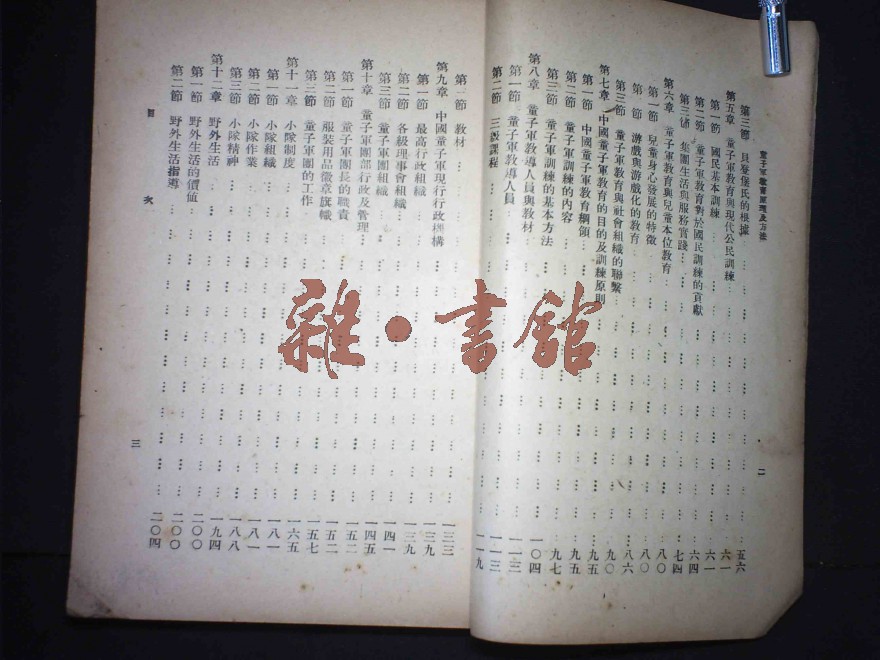 童子軍教育原理及方法
二
第三節 貝登堡氏的根據 五六
第五章 童子軍教育與現代公民訓練 六一
第一節 國民基本訓練 六一
第二節 童子軍教育對於國民訓練的貢獻 六四
第三節 集團生活與服務實踐 七四
第六章 童子軍教育與兒童本位教育 八〇
第一節 兒童身心發展的特徵 八〇
第二節 游戲與游戲化的教育 八六
第三節 童子軍教育與社會組織的聯繫 九〇
第七章 中國童子軍教育的目的及訓練原則 九五
第一節 中國童子軍教育綱領 九五
第二節 童子軍訓練的內容 九七
第三節 童子軍訓練的基本方法 一〇四
第八章 童子軍教導人員與教材 一一三
第一節 童子軍教導人員 一一三
第二節 三級課程 一一九
第三節 教材 一三三
第九章 中國童子軍現行行政機構 一三九
第一節 最高行政組織 一三九
第二節 各級理事會組織 一四一
第三節 童子軍團組織 一四五
第十章 童子軍團部行政及管理 一五二
第一節 童子軍團長的職責 一五二
第二節 服裝用品徽章旗幟 一五七
第三節 童子軍團的工作 一六五
第十一章 小隊制度 一八一
第一節 小隊組織 一八一
第二節 小隊作業 一八八
第三節 小隊精神 一九四
第十二章 野外生活 二〇〇
第一節 野外生活的價值 二〇〇
第二節 野外生活指導 二〇四
目次
三
雜·書館